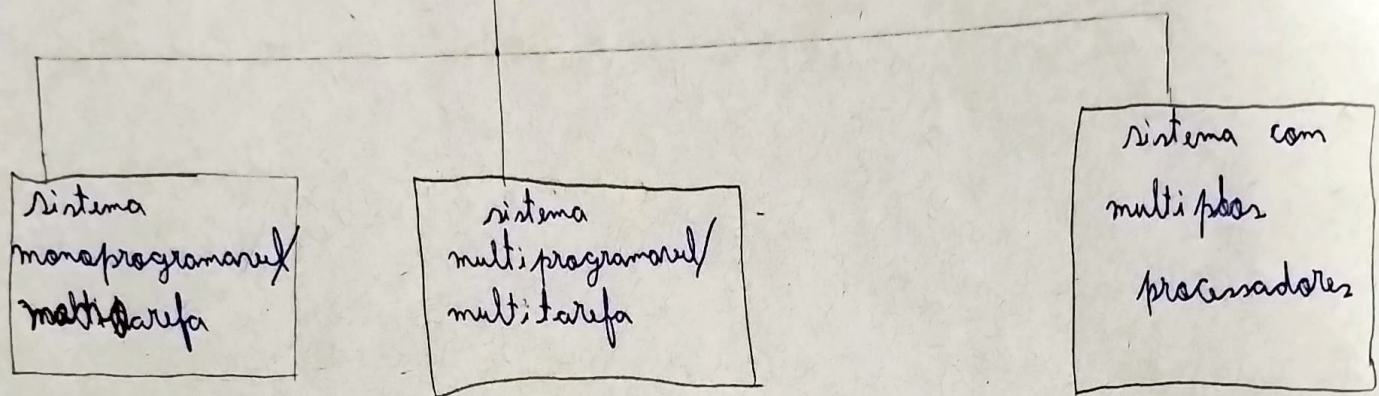 sistema
monoprogramavel/
tarefa
sistema
multiprogramavel/
multitarefa
sistema com
multiplos
processadores